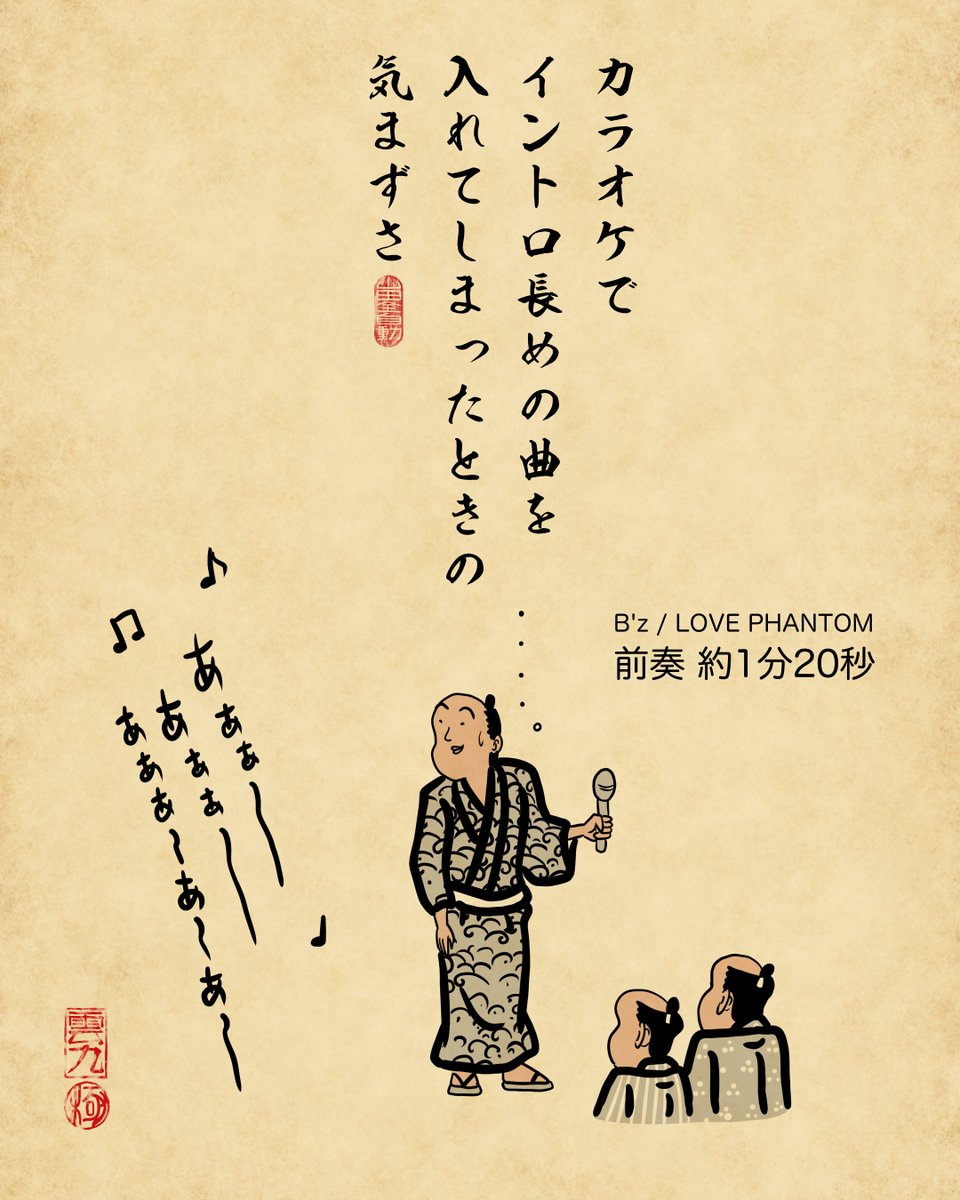 カラオケで
イントロ長めの曲を
入れてしまったときの
気まずさ
B'z / LOVE PHANTOM
前奏 約1分20秒
あぁぁ〜
あぁぁ〜
あぁぁ〜あ〜あ〜
雲九
極